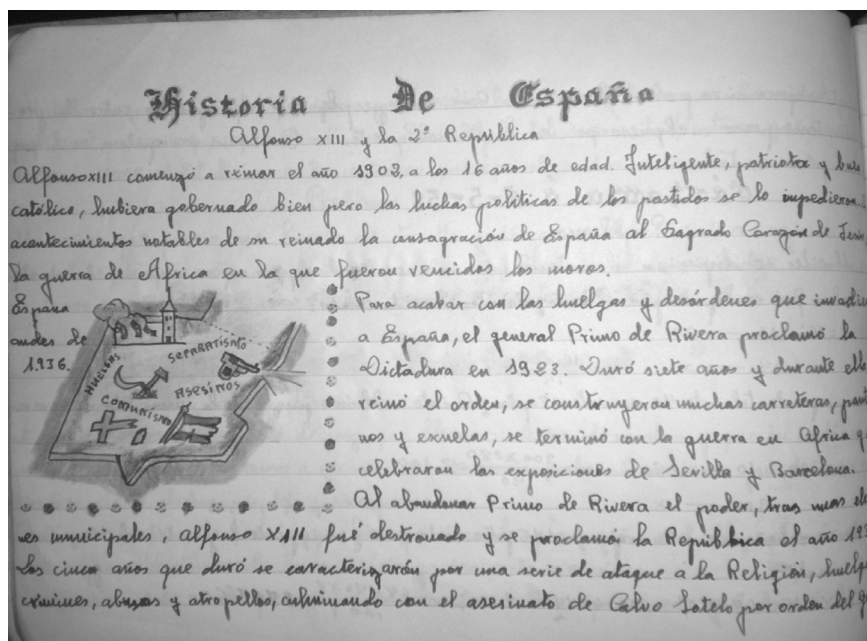 Historia De España
Alfonso XIII y la 2ª República
Alfonso XIII comenzó a reinar el año 1902, a los 16 años de edad. Inteligente, patriota y buen
católico, hubiera gobernado bien pero las luchas políticas de los partidos se lo impedieron.
acontecimientos notables de su reinado la consagración de España al Sagrado Corazón de Jesús
la guerra de Africa en la que fueron vencidos los moros.
España
andes de
1.936.
HUELGAS
SEPARATISMO
ASESINOS
COMUNISMO
Para acabar con las huelgas y desórdenes que
a España, el general Primo de Rivera proclamó la
Dictadura en 1923. Duró siete años y durante ello
reinó el orden, se construyeron muchas carreteras,
nos y escuelas, se terminó con la guerra en Africa
celebraron las exposiciones de Sevilla y Barcelona.
Al abandonar Primo de Rivera el poder, tras unas
es municipales, Alfonso XIII fué destronado y se proclamó la República el año 193
Los cinco años que duró se caracterizarón por una serie de ataque a la Religión, huelg
crímines, abusos y atropellos, culminando con el asesinato de Calvo Sotelo por orden del